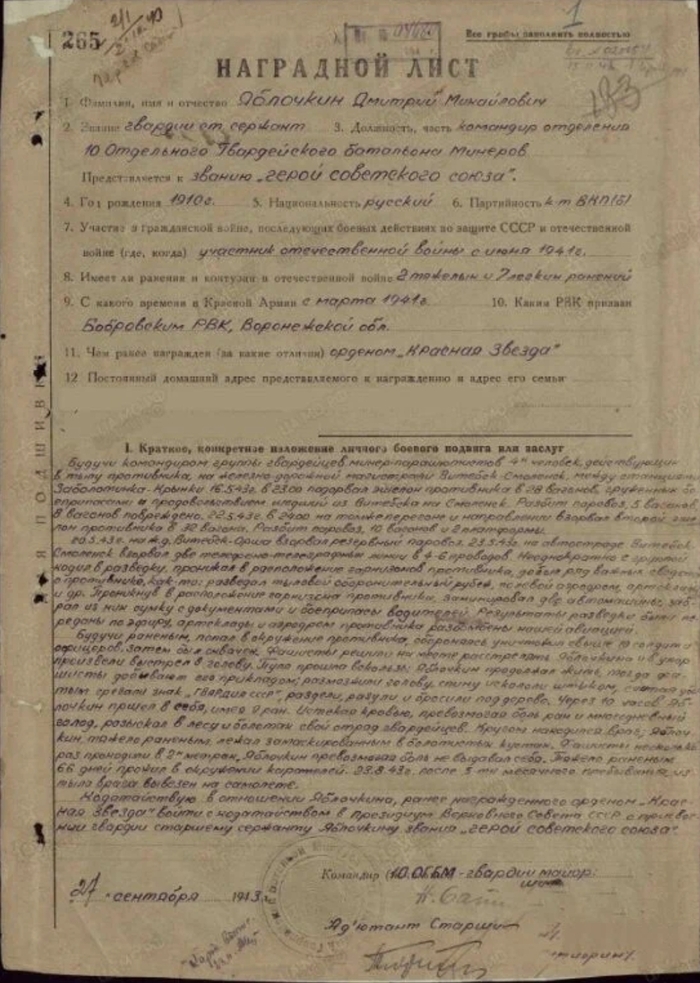 265
1
Все графы заполнять полностью
НАГРАДНОЙ ЛИСТ
183
1. Фамилия, имя и отчество Яблочкин Дмитрий Михайлович
2. Звание гвардии ст. сержант 3. Должность, часть командир отделения
10 Отдельного Гвардейского батальона минеров
Представляется к званию „герой советского союза".
4. Год рождения 1910 г. 5. Национальность русский 6. Партийность к-т ВКП(б)
7. Участие в гражданской войне, последующих боевых действиях по защите СССР и отечественной
войне (где, когда) участник отечественной войны с июня 1941 г.
8. Имеет ли ранения и контузии в отечественной войне 2 тяжелых и 7 легких ранений
9. С какого времени в Красной Армии с марта 1941 г. 10. Каким РВК призван
Бобровским РВК, Воронежской обл.
11. Чем ранее награжден (за какие отличия) орденом „Красная Звезда"
12 Постоянный домашний адрес представляемого к награждению и адрес его семьи
ДЛЯ ПОДШИВКИ
I. Краткое, конкретное изложение личного боевого подвига или заслуг
Будучи командиром группы гвардейцев минер-парашютистов 4х человек, действующих
в тылу противника, на железно-дорожной магистрали Витебск-Смоленск, между станциями
Заболотинка-Крынки 16.5.43г. в 23.00 подорвал эшелон противника в 28 вагонов, груженных бо
еприпасами и продовольствием шедший из Витебска на Смоленск. Разбит паровоз, 5 вагонов,
8 вагонов повреждено. 22.5.43г. в 24.00 на том же перегоне и направлении взорвал второй эше
лон противника в 32 вагона. Разбит паровоз, 10 вагонов и 2 платформы.
20.5.43г. на ж.д. Витебск-Орша взорвал резервный паровоз. 23.5.43г. на автостраде Витебск
Смоленск взорвал две телефоно-телеграфные линии в 4-6 проводов. Неоднократно с группой
ходил в разведку, проникал в расположение гарнизонов противника, добыл ряд важных сведений
о противнике, как-то: разведал тыловой оборонительный рубеж, полевой аэродром, артсклады
и др. Проникнув в расположение гарнизона противника, заминировал две автомашины, заб
рал из них сумку с документами и боеприпасы водителей. Результаты разведки были пе
реданы по эфиру, артсклады и аэродром противника разбомблены нашей авиацией.
Будучи раненым, попал в окружение противника, обороняясь уничтожил свыше 10 солдат и
офицеров, затем был схвачен. Фашисты решили на месте расстрелять Яблочкина и в упор
произвели выстрел в голову. Пуля прошла вскользь. Яблочкин продолжал жить, тогда фа-
шисты добивают его прикладом, размозжили голову, спину искололи штыком, считая уби
тым сорвали знак „гвардия ссср", раздели, разули и бросили под дерево. Через 10 часов Яб
лочкин пришел в себя, имея 9 ран. Истекая кровью, превозмогая боль ран и многодневный
голод, разыскал в лесу и болотах свой отряд гвардейцев. Кругом находился враг; Яблоч
кин, тяжело раненым, лежал замаскированным в болотистых кустах. Фашисты несколько
раз проходили в 2х метрах, Яблочкин превозмогая боль не выдавал себя. Тяжело раненым
66 дней прожил в окружении карателей. 23.8.43г. после 5-ти месячного пребывания, из
тыла врага вывезен на самолете.
Ходатайствую в отношении Яблочкина, ранее награжденного орденом „Крас
ная Звезда" войти с ходатайством в президиум Верховного Совета СССР о присвое
нии гвардии старшему сержанту Яблочкину звания „герой советского союза".
Командир 10.ОГБМ-гвардии майор:
27 сентября 1943
Ад'ютант Старший